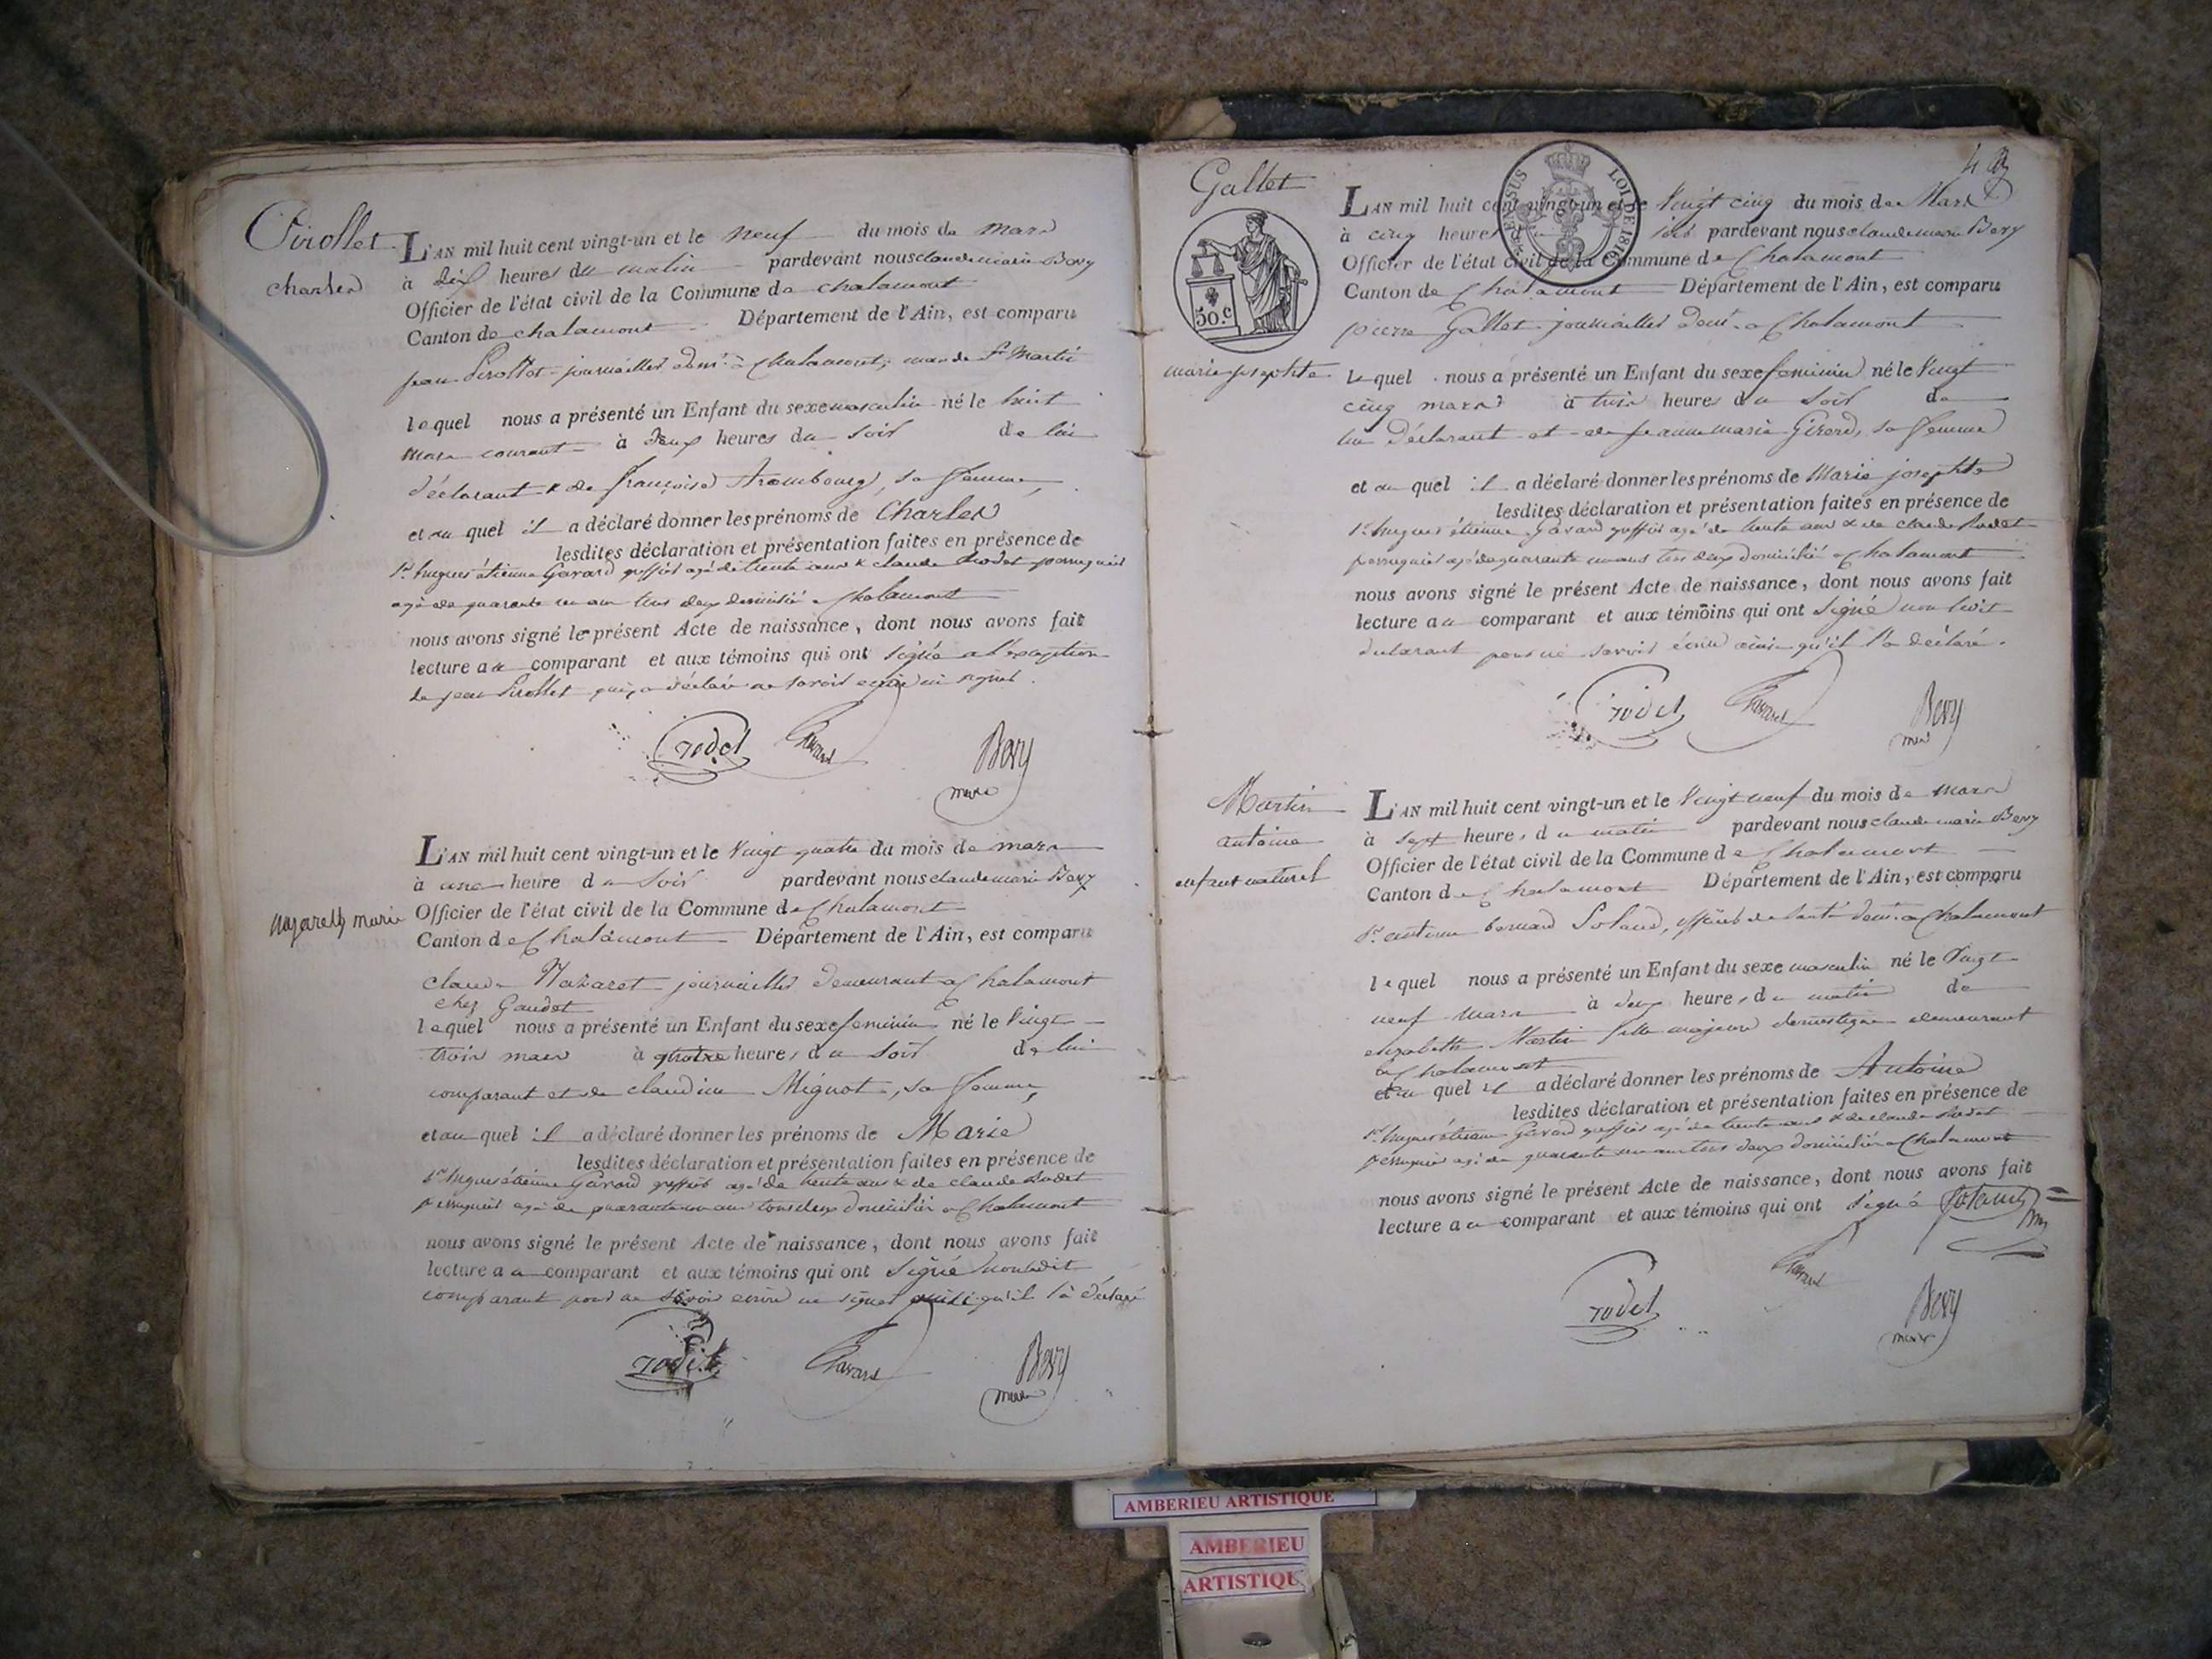 Pirollet
charles
L'AN mil huit cent vingt-un et le neuf du mois de mars
à dix heures du matin pardevant nous claude marie Bery
Officier de l'état civil de la Commune de chalamont
Canton de chalamont Département de l'Ain, est comparu
jean Pirollet journaillier à Chalamont,
lequel nous a présenté un Enfant du sexe masculin né le huit
mars courant à deux heures du soir de lui
déclarant & de françoise Arambourg, sa femme,
et au quel il a déclaré donner les prénoms de Charles
lesdites déclaration et présentation faites en présence de
Sr hugues étienne Gavard greffier agé de trente ans & claude Rodet perruquier
agé de quarante un ans tous deux domicilié a Chalamont
nous avons signé le présent Acte de naissance, dont nous avons fait
lecture au comparant et aux témoins qui ont signé a l'exception
de jean Pirollet qui a déclaré ne savoir ecrire ni signer.
rodet Gavard Bery
maire
Nazareth marie
L'AN mil huit cent vingt-un et le vingt quatre du mois de mars
à une heure du soir pardevant nous claude marie Bery
Officier de l'état civil de la Commune de Chalamont
Canton de Chalamont Département de l'Ain, est comparu
claude Nazaret journaillier demeurant a Chalamont
chez Gaudet
lequel nous a présenté un Enfant du sexe feminin né le vingt
trois mars à heures du soir de lui
comparant et de claudine Mignot, sa femme,
et au quel il a déclaré donner les prénoms de Marie
lesdites déclaration et présentation faites en présence de
Sr hugues étienne Gavard greffier agé de trente ans & de claude Rodet
perruquier agé de quarante un ans tous deux domicilié a Chalamont
nous avons signé le présent Acte de naissance, dont nous avons fait
lecture au comparant et aux témoins qui ont signé non ledit
comparant pour ne savoir ecrire ni signer qu'il l'a déclaré
rodet Gavard Bery
maire
Gallet
50.c
marie josephte
L'AN mil huit cent vingt-un et le vingt cinq du mois de Mars
à cinq heures soir pardevant nous claude marie Bery
Officier de l'état civil de la Commune de Chalamont
Canton de Chalamont Département de l'Ain, est comparu
pierre Gallet journaillier demt a Chalamont
LOI DE 1816
lequel nous a présenté un Enfant du sexe feminin né le vingt
cinq mars à trois heures du soir de
lui Déclarant et de jeanne marie Girerd, sa femme
et au quel il a déclaré donner les prénoms de Marie josephte
lesdites déclaration et présentation faites en présence de
Sr hugues étienne Gavard greffier agé de trente ans & de claude Rodet
perruquier agé de quarante un ans tous deux domicilié a Chalamont
nous avons signé le présent Acte de naissance, dont nous avons fait
lecture au comparant et aux témoins qui ont signé non ledit
declarant pour ne savoir écrire ainsi qu'il l'a déclaré.
rodet Gavard Bery
maire
Martin
antoine
enfant naturel
L'AN mil huit cent vingt-un et le vingt neuf du mois de mars
à sept heures du matin pardevant nous claude marie Bery
Officier de l'état civil de la Commune de Chalamont
Canton de Chalamont Département de l'Ain, est comparu
Sr antoine bernard Soland, officier de santé demt a Chalamont
lequel nous a présenté un Enfant du sexe masculin né le vingt
neuf mars à deux heures du matin de
elizabeth Martin fille majeure domestique demeurant
a Chalamont
et au quel il a déclaré donner les prénoms de Antoine
lesdites déclaration et présentation faites en présence de
Sr hugues étienne Gavard greffier agé de trente ans & de claude Rodet
perruquier agé de quarante un ans tous deux domicilié a Chalamont
nous avons signé le présent Acte de naissance, dont nous avons fait
lecture au comparant et aux témoins qui ont signé Soland
rodet Gavard Bery
maire
AMBERIEU ARTISTIQUE
AMBERIEU
ARTISTIQU